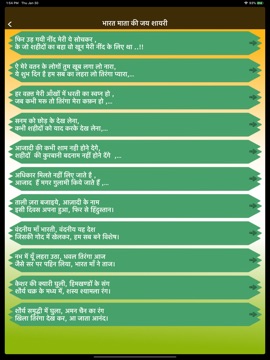 1:04 PM Thu Jan 20
भारत माता की जय शायरी
फिर उड़ गयी नींद मेरी ये सोचकर ,
के जो शहीदों का बहा वो खून मेरी नींद के लिए था ..!!
ऐ मेरे वतन के लोगों तुम खूब लगा लो नारा,
ये शुभ दिन है हम सब का लहरा लो तिरंगा प्यारा,..
हर वक़्त मेरी आँखों में धरती का स्वप्न हो ,
जब कभी मरू तो तिरंगा मेरा कफ़न हो ,...
सनम को छोड़ के देख लेना,
कभी शहीदों को याद करके देख लेना,..
आजादी की कभी शाम नही होने देंगे
शहीदों की कुरबानी बदनाम नहीं होने देंगे ,...
अधिकार मिलते नहीं लिए जाते है ,
आजाद हैं मगर गुलामी किये जाते हैं ,...
ताली ज़रा बजाइये, आज़ादी के नाम
इसी दिवस अपना हुआ, फिर से हिंदुस्तान।
वंदनीय माँ भारती, वंदनीय यह देश
जिसकी गोद में खेलकर, हम सब बने विशेष।
नभ में यूँ लहरा उठा, धवल तिरंगा आज
जैसे सर पर पहिन लिया, भारत माँ ने ताज।
केशर की क्यारी धुली, हिमखण्डों के संग
शौर्य चक्र के मध्य में, शस्य श्यामला रंग।
शौर्य समृद्धी में घुला, अमन चैन का रंग
खिला तिरंगा देख कर, आ जाता आनंद।